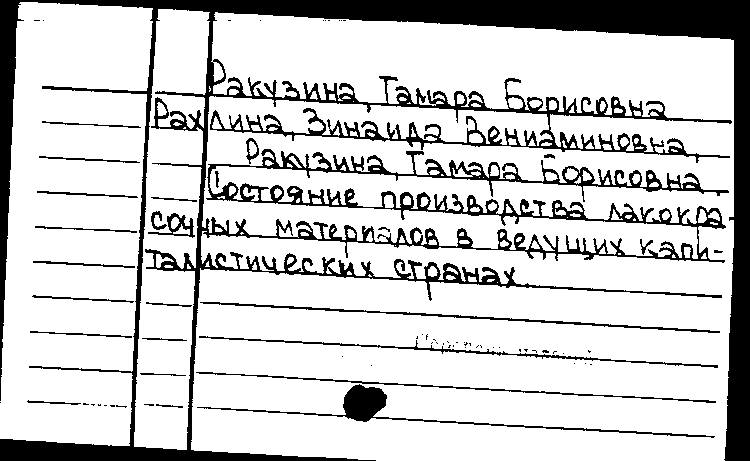 Ракузина, Тамара Борисовна
Рахлина, Зинаида Вениаминовна,
Ракузина, Тамара Борисовна.
Состояние производства лакокра-
сочных материалов в ведущих капи-
талистических странах.